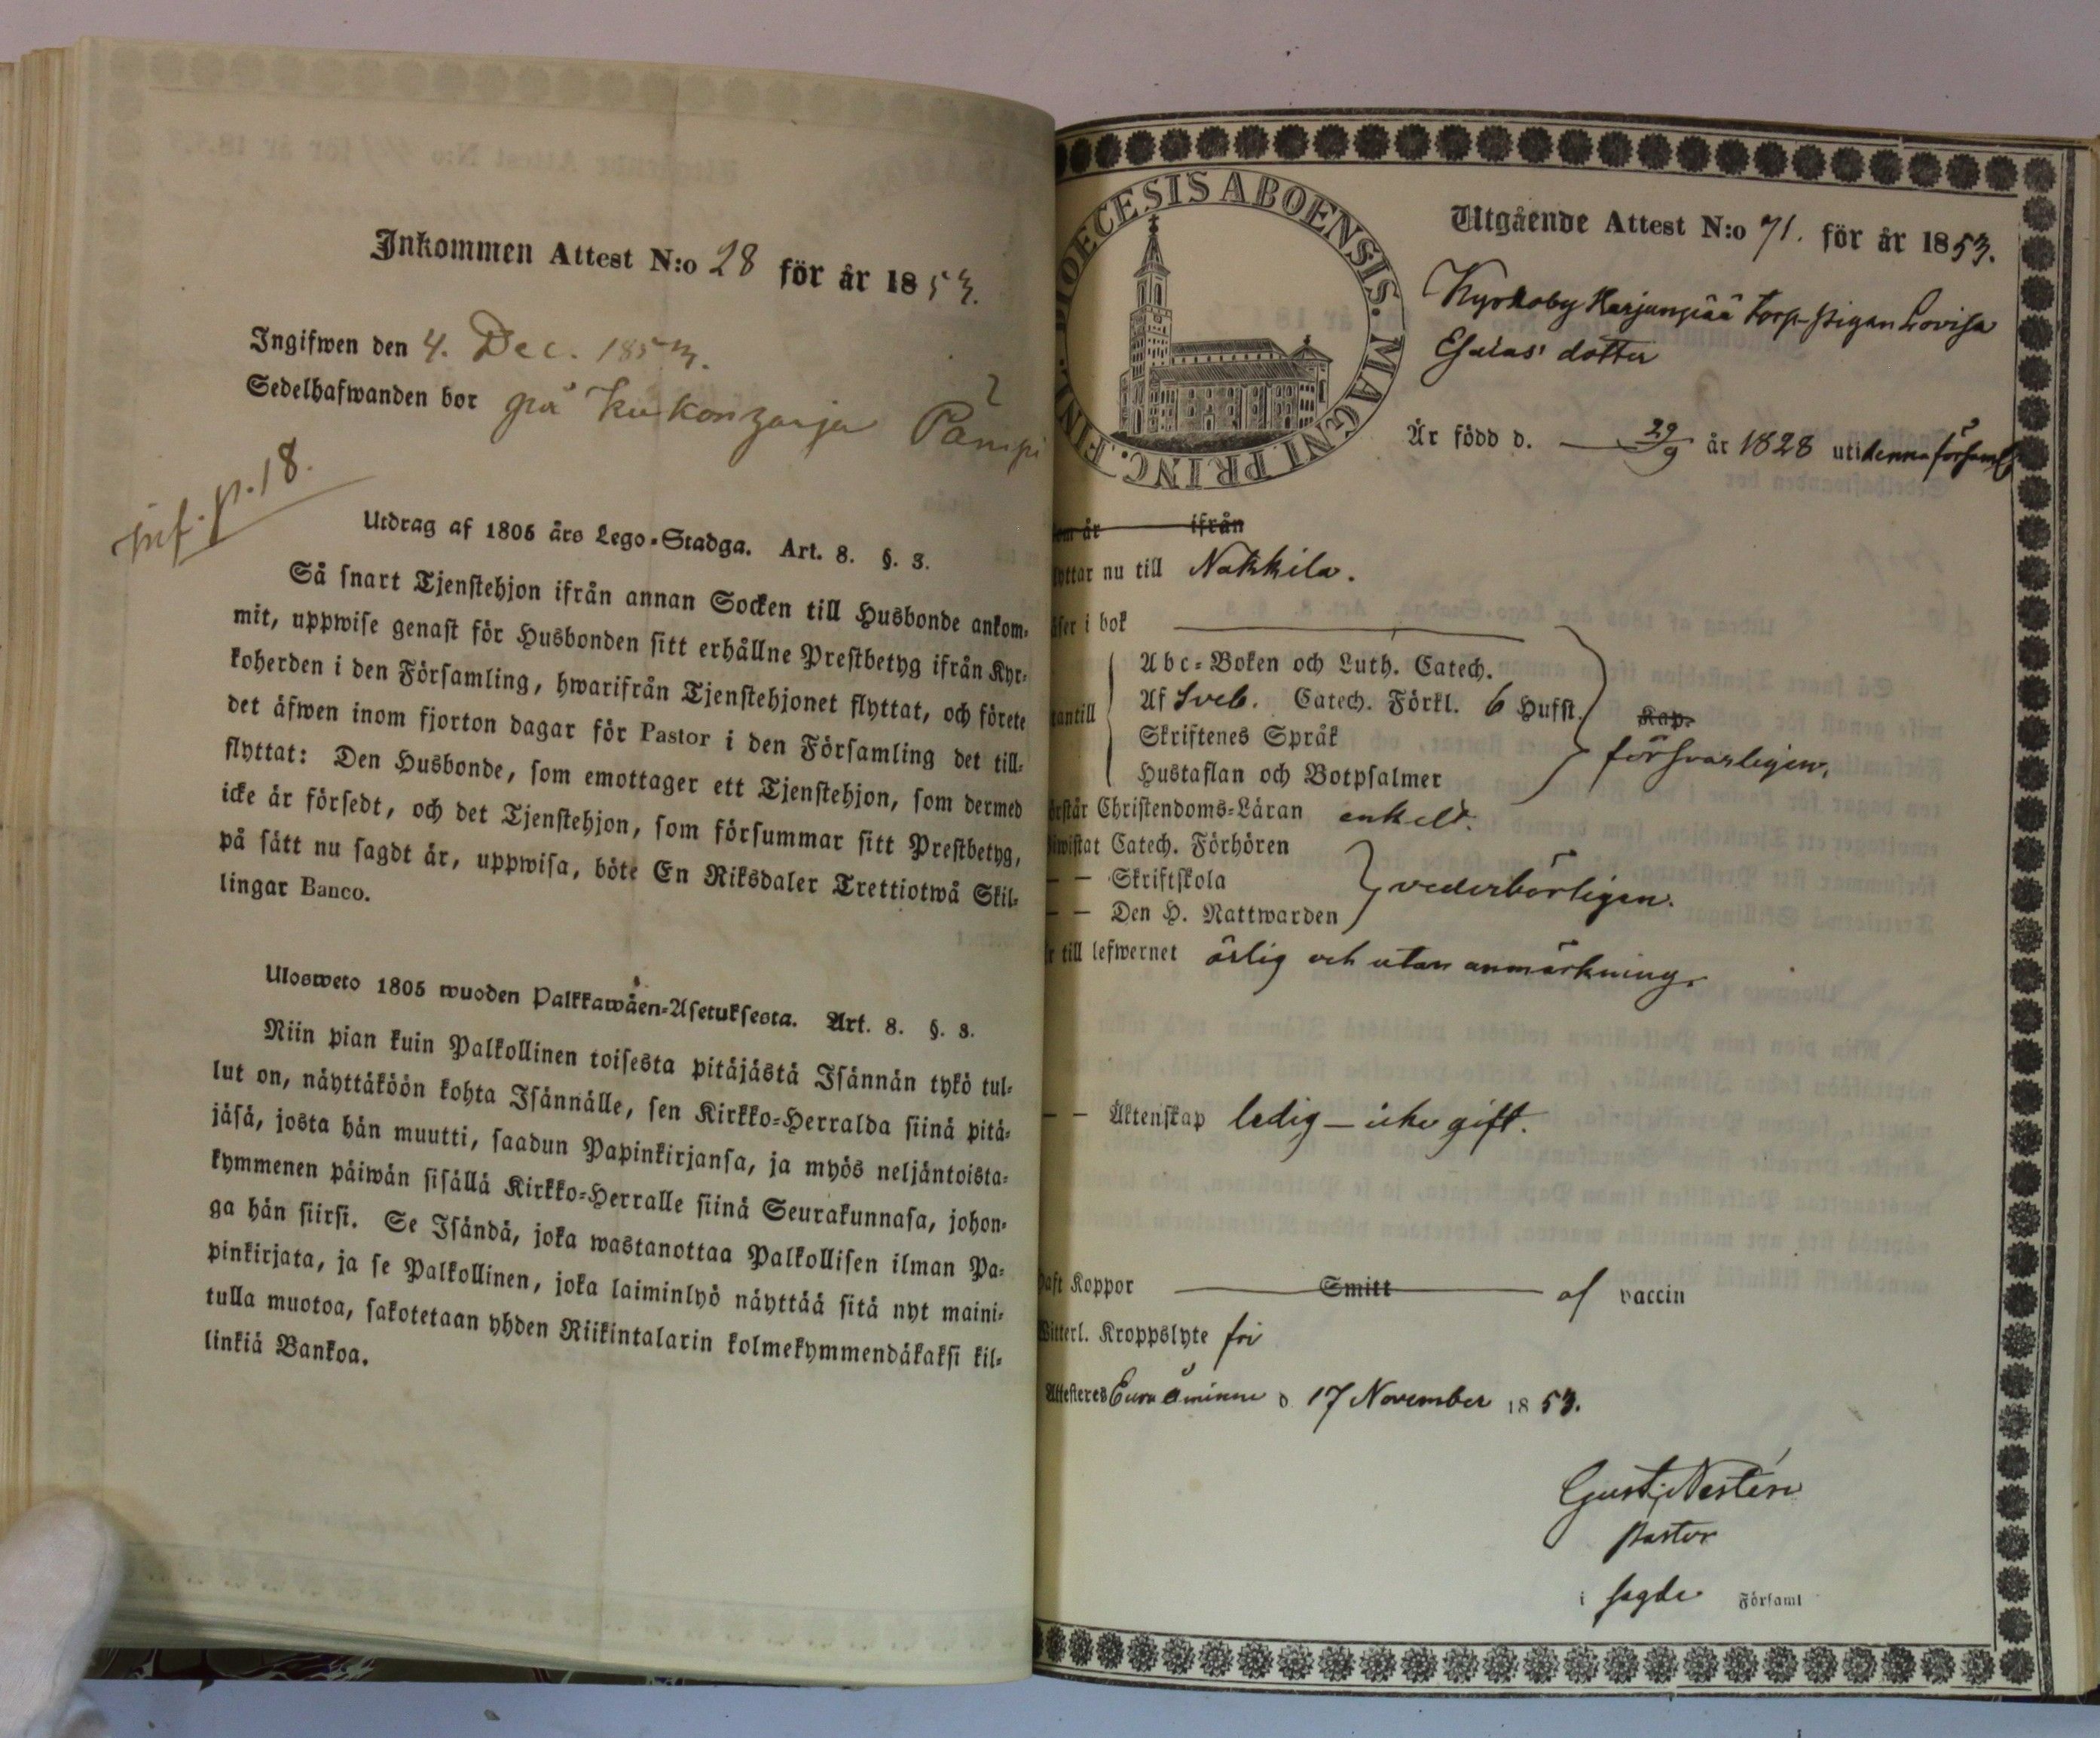 Inkommen Attest N:o 28 för år 1853.
Ingifwen den 4. Dec. 1853.
Sedelhafwanden bor på
inf. p. 18.
Utdrag af 1805 års Lego-Stadga. Art. 8. §. 3.
Så snart Tjenstehjon ifrån annan Socken till Husbonde ankom-
mit, uppwise genast för Husbonden sitt erhållne Prestbetyg ifrån Kyr-
koherden i den Församling, hwarifrån Tjenstehjonet flyttat, och förete
det äfwen inom fjorton dagar för Pastor i den Församling det till-
flyttat: Den Husbonde, som emottager ett Tjenstehjon, som dermed
icke är försedt, och det Tjenstehjon, som försummar sitt Prestbetyg,
på sätt nu sagdt är, uppwisa, böte En Riksdaler Trettiotwå Skil-
lingar Banco.
Ulosweto 1805 wuoden Palkkawäen-Asetuksesta. Art. 8. §. 3.
Niin pian kuin Palkollinen toisesta pitäjästä Isännän tykö tul-
lut on, näyttäköön kohta Isännälle, sen Kirkko-Herralda siinä pitä-
jäsä, josta hän muutti, saadun Papinkirjansa, ja myös neljäntoista-
kymmenen päiwän sisällä Kirkko-Herralle siinä Seurakunnasa, johon-
ga hän siirsi. Se Isändä, joka wastanottaa Palkollisen ilman Pa-
pinkirjata, ja se Palkollinen, joka laiminlyö näyttää sitä nyt maini-
tulla muotoa, sakotetaan yhden Riikintalarin kolmekymmendäkaksi kil-
linkiä Bankoa.
DIOECESIS ABOENSIS. MAGNI PRINC. FINL.
Utgående Attest N:o 71. för år 1853.
Kyrkoby Harjunpää torp-pigan Lovisa
Esaias' dotter
Är född d. 29/9 år 1828 uti denna församl
om år ifrån
yttar nu till Nakkila.
äser i bok
Abc-Boken och Luth. Catech.
utantill Af Sveb. Catech. Förkl. 6 Hufst. Kap.
Skriftenes Språk försvarligen.
Hustaflan och Botpsalmer
örstår Christendoms-Läran enkelt.
iwistat Catech. Förhören
— — Skriftskola vederbörligen.
— — Den H. Nattwarden
r till lefwernet ärlig och utan anmärkning.
— — Äktenskap ledig — icke gift.
haft Koppor Smitt af vaccin
Witterl. Kroppslyte fri
Attesteres Euraåminne d 17 November 1853.
Gust. Nestén
Pastor
i sagde Församl